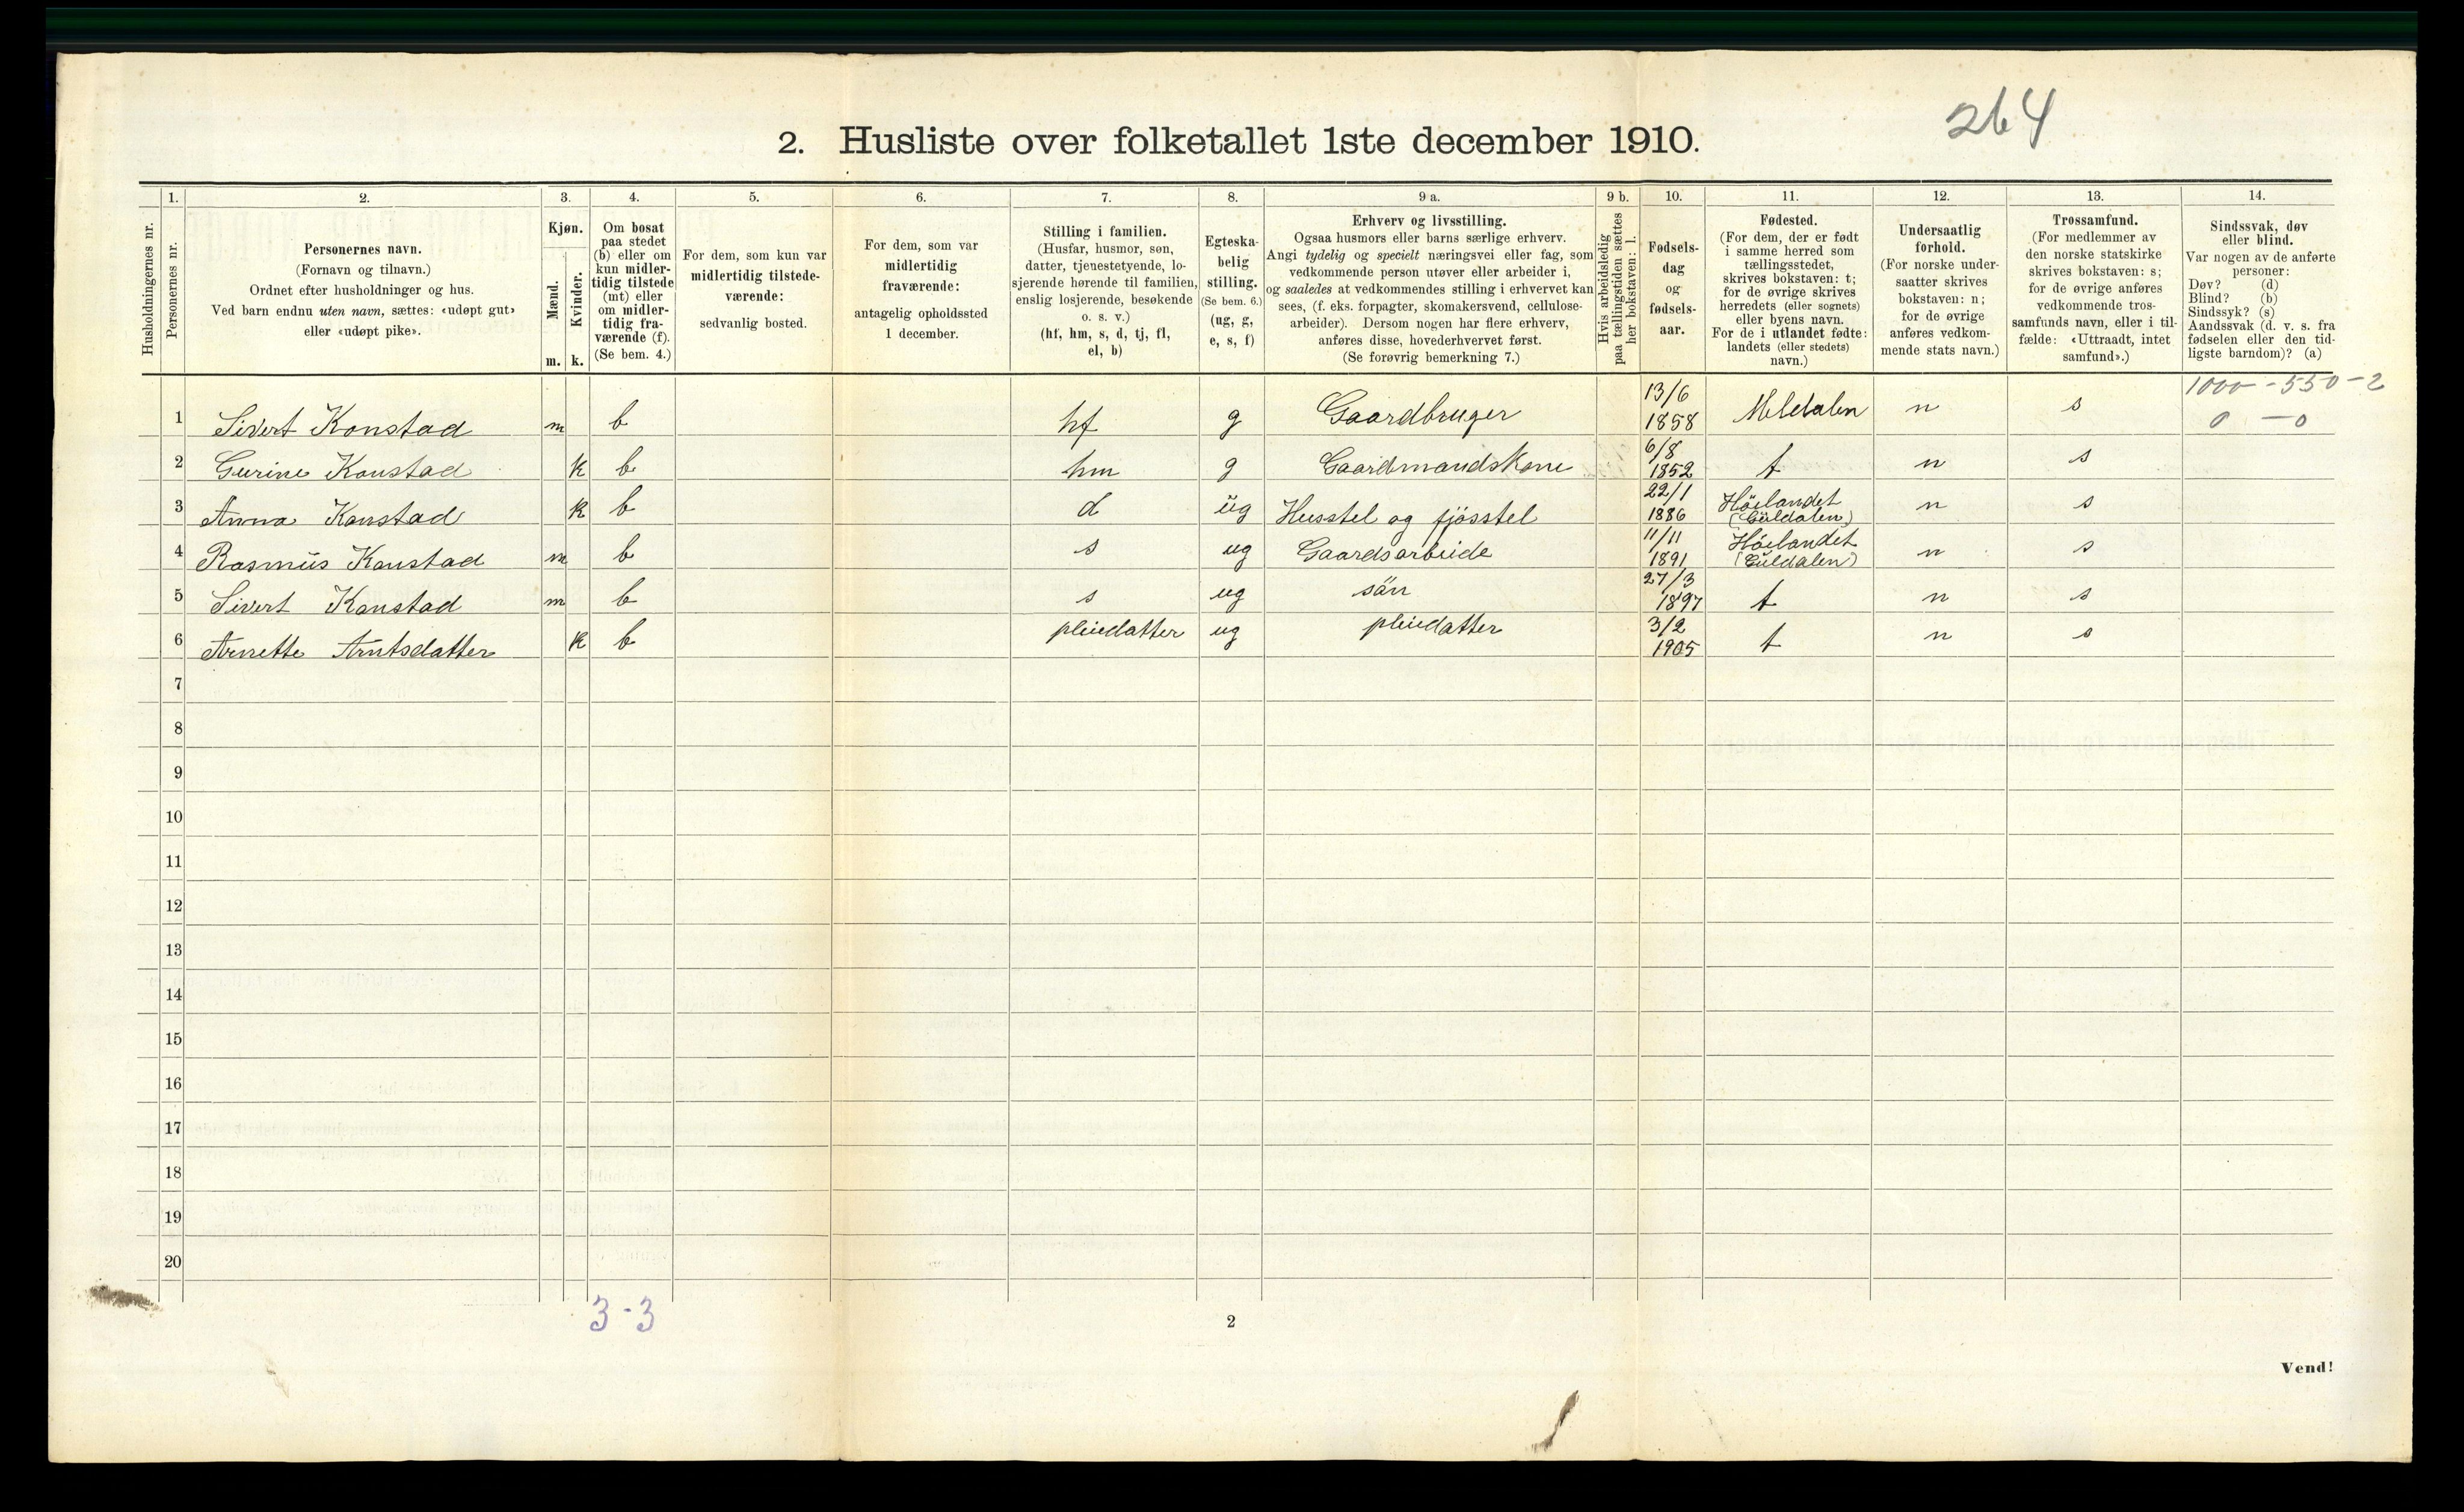 264
2. Husliste over folketallet 1ste december 1910.
1. 2. 3. 4. 5. 6. 7. 8. 9 a. 9 b. 10. 11. 12. 13. 14.
Husholdningernes nr.
Personernes nr.
Personernes navn.
(Fornavn og tilnavn.)
Ordnet efter husholdninger og hus.
Ved barn endnu uten navn, sættes: «udøpt gut»
eller «udøpt pike».
Kjøn.
Mænd.
Kvinder.
m. k.
Om bosat
paa stedet
(b) eller om
kun midler-
tidig tilstede
(mt) eller
om midler-
tidig fra-
værende (f).
(Se bem. 4.)
For dem, som kun var
midlertidig tilstede-
værende:
sedvanlig bosted.
For dem, som var
midlertidig
fraværende:
antagelig opholdssted
1 december.
Stilling i familien.
(Husfar, husmor, søn,
datter, tjenestetyende, lo-
sjerende hørende til familien,
enslig losjerende, besøkende
o. s. v.)
(hf, hm, s, d, tj, fl,
el, b)
Egteska-
belig
stilling.
(Se bem. 6.)
(ug, g,
e, s, f)
Erhverv og livsstilling.
Ogsaa husmors eller barns særlige erhverv.
Angi tydelig og specielt næringsvei eller fag, som
vedkommende person utøver eller arbeider i,
og saaledes at vedkommendes stilling i erhvervet kan
sees, (f. eks. forpagter, skomakersvend, cellulose-
arbeider). Dersom nogen har flere erhverv,
anføres disse, hovederhvervet først.
(Se forøvrig bemerkning 7.)
Hvis arbeidsledig
paa tællingstiden sættes
her bokstaven: l.
Fødsels-
dag
og
fødsels-
aar.
Fødested.
(For dem, der er født
i samme herred som
tællingsstedet,
skrives bokstaven: t;
for de øvrige skrives
herredets (eller sognets)
eller byens navn.
For de i utlandet fødte:
landets (eller stedets)
navn.)
Undersaatlig
forhold.
(For norske under-
saatter skrives
bokstaven: n;
for de øvrige
anføres vedkom-
mende stats navn.)
Trossamfund.
(For medlemmer av
den norske statskirke
skrives bokstaven: s;
for de øvrige anføres
vedkommende tros-
samfunds navn, eller i til-
fælde: «Uttraadt, intet
samfund».)
Sindssvak, døv
eller blind.
Var nogen av de anførte
personer:
Døv? (d)
Blind? (b)
Sindssyk? (s)
Aandssvak (d. v. s. fra
fødselen eller den tid-
ligste barndom)? (a)
1000 - 550 - 2
0 - 0
1 Sivert Konstad m b hf g Gaardbruger 13/6 1858 Meldalen n s
2 Gurine Konstad k b hm g Gaardmandskone 6/8 1852 t n s
3 Anna Konstad k b d ug Husstel og fjösstel 22/1 1886 Höilandet (Guldalen) n s
4 Rasmus Konstad m b s ug Gaardsarbeide 11/11 1891 Höilandet (Guldalen) n s
5 Sivert Konstad m b s ug sön 27/3 1897 t n s
6 Arnette Arntsdatter k b pleiedatter ug pleiedatter 3/2 1905 t n s
7
8
9
10
11
12
13
14
15
16
17
18
19
20
3 - 3
2
Vend!